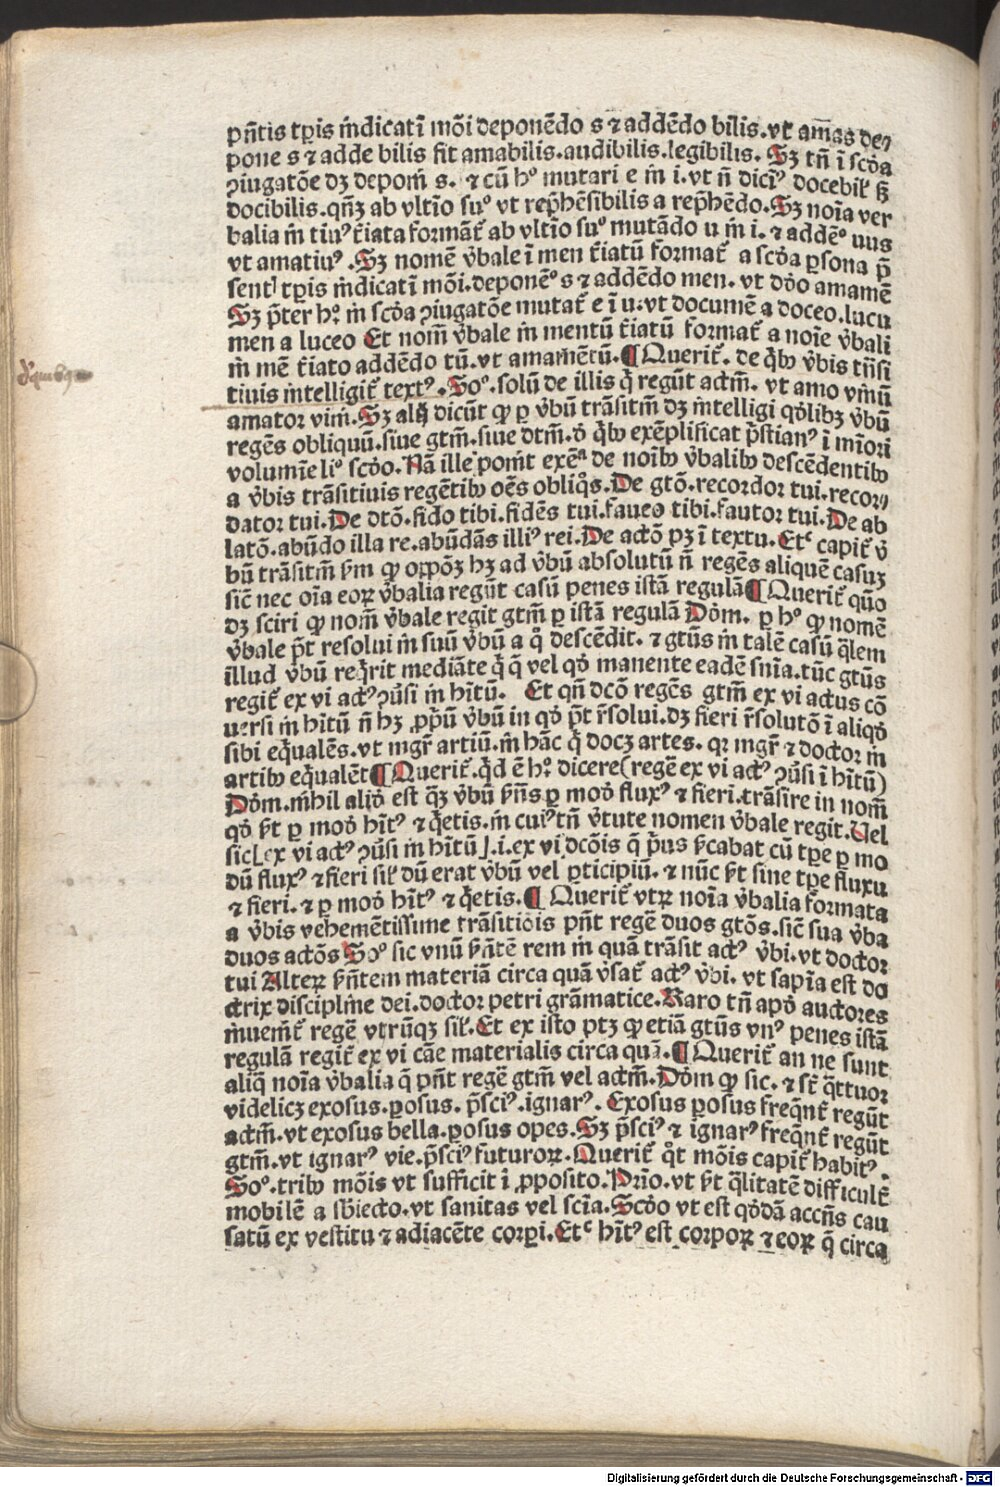 pñtis tꝑis īndicatī mōi deponēdo s ⁊ addēdo bilis. vt am̄as de⸗
pone s ⁊ adde bilis fit amabilis. audibilis. legibilis. Sꝫ tn̄ ī scd̓a
ꝯiugatōe dꝫ deponi s. ⁊ cū hᵒ mutari e in i. vt n̄ diciꝰ docebiƚ sꝫ
docibilis. qn̄ꝫ ab vltīo suᵒ vt rep̄hēsibilis a rep̄hēdo. Sꝫ noīa ver
balia in tiuꝰ t̄iata formāt᷑ ab vltīo suᵒ mutādo u in i. ⁊ addēᵒ uus
vt amatiuꝰ. Sꝫ nomē v̓bale ī men t̄iatū format᷑ a scd̓a ꝑsona p̄
sentꝭ tꝑis indicatī mōi. deponēᵒ s ⁊ addēdo men. vt dōo amamē
Sꝫ p̄ter hᵒ. in scd̓a ꝯiugatōe mutat᷑ e ī u. vt documē a doceo. lucu
men a luceo Et nom̄ v̓bale in mentū t̄iatū format᷑ a noīe v̓bali
in mē t̄iato addēdo tū. vt amamētū. ¶ Querit᷑. de qͥbꝰ v̓bis tn̄si
tiuis intelligit᷑ textꝰ. Soᵒ. solū de illis q̄ regūt actm̄. vt amo vinū
amator vini. Sꝫ alij dicūt ꝙ ꝑ v̓bū trāsitm̄ dꝫ intelligi qd̓libꝫ v̓bū
regēs obliquū. siue gtm̄. siue dtm̄. d̓ qͥbꝰ exēplificat p̄stianꝰ ī mīori
volumīe liᵒ scd̓o. Nā ille ponit exēᵃ de noībꝰ v̓balibꝰ descēdentibꝰ
a v̓bis trāsitiuis regētibꝰ oēs obliqͦs. De gtō. recordor tui. recor⸗
dator tui. De dtō. fido tibi. fidēs tui. faueo tibi. fautor tui. De ab
latō. abūdo illa re. abūdās illiꝰ rei. De actō pꝫ ī textu. Etᶜ capit᷑ v̓
bū trāsitm̄ ẜm ꝙ oꝑpōꝫ hꝫ ad v̓bū absolutū n̄ regēs aliquē casuꝫ
sic̄ nec oīa eoꝝ v̓balia regūt casū penes istā regulā ¶ Querit᷑ quō
dꝫ sciri ꝙ nom̄ v̓bale regit gtm̄ ꝑ istā regulā Dōm. ꝑ hᵒ ꝙ nomē
v̓bale p̄t resolui in suū v̓bū a q̊ descēdit. ⁊ gtūs in talē casū q̄lem
illud v̓bū reqͥrit mediāte q̄ q̄ vel qd̓ manente eadē sn̄ia. tūc gtūs
regit᷑ ex vi actꝰ ꝯu̓si in hītū. Et qn̄ dcō regēs gtm̄ ex vi actus cō
uersi in hītū n̄ hꝫ ꝓpū v̓bū in qd̓ p̄t r̄solui. dꝫ fieri r̄solutō ī aliqd̓
sibi eq̄ualēs. vt mgr̄ artiū. in hāc q̄ docꝫ artes. qꝛ mgr̄ ⁊ doctor in
artibꝰ eq̄ualēt ¶ Querit᷑. qͥd ē hᵒ. dicere (regē ex vi actꝰ ꝯu̓si ī hītū)
Dōm. nihil alid̓ est qꝫ v̓bū ẜn̄s ꝑ mod̓ fluxꝰ ⁊ fieri. trāsire in nom̄
qd̓ ẜt ꝑ mod̓ hītꝰ ⁊ qͥetis. in cuiꝰ tn̄ v̓tute nomen v̓bale regit. Uel
sic [ex vi actꝰ ꝯu̓si in hītū]. i. ex vi dcōis q̄ p̄us ẜcabat cū tꝑe ꝑ mo
dū fluxꝰ ⁊ fieri siƚ dū erat v̓bū vel ꝑticipiū. ⁊ nūc ẜt sine tꝑe fluxu
⁊ fieri. ⁊ ꝑ mod̓ hītꝰ ⁊ qͥetis. ¶ Querit᷑ vtꝝ noīa v̓balia formata
a v̓bis vehemētissime trāsitiōis pn̄t regē duos gtōs. sic̄ sua v̓ba
duos actōs Soᵒ sic vnū ẜn̄tē rem in quā trāsit actꝰ v̓bi. vt doctor
tui Alteꝝ ẜn̄tem materiā circa quā v̓sat᷑ actꝰ v̓bi. vt sapīa est do
ctrix discipline dei. doctor petri grāmatice. Raro tn̄ apd̓ auctores
inuenit᷑ regē vtrūqꝫ siƚ. Et ex isto ptꝫ ꝙ etiā gtūs vnꝰ penes istā
regulā regit᷑ ex vi cāe materialis circa quā. ¶ Querit᷑ an ne sunt
aliq̄ noīa v̓balia q̄ pn̄t regē gtm̄ vel actm̄. Dōm ꝙ sic. ⁊ st̄ q̄ttuor
videlicꝫ exosus. ꝑosus. p̄sciꝰ. ignarꝰ. Exosus ꝑosus freqn̄t᷑ regūt
actm̄. vt exosus bella. ꝑosus opes. Sꝫ p̄sciꝰ ⁊ ignarꝰ freqn̄t᷑ regūt
gtm̄. vt ignarꝰ vie. p̄sciꝰ futuroꝝ. Querit᷑ qͦt mōis capit᷑ habitꝰ.
Soᵒ. tribꝰ mōis vt sufficit ī ꝓposito. Prīo. vt ẜt q̄litatē difficult̄
mobilē a sb̄iecto. vt sanitas vel scīa. Scd̓o vt est qd̓dā accn̄s cau
satū ex vestitu ⁊ adiacēte corꝑi. Etᶜ hītꝰ est corpoꝝ ⁊ eoꝝ q̄ circa
Digitalisierung gefördert durch die Deutsche Forschungsgemeinschaft - DFG